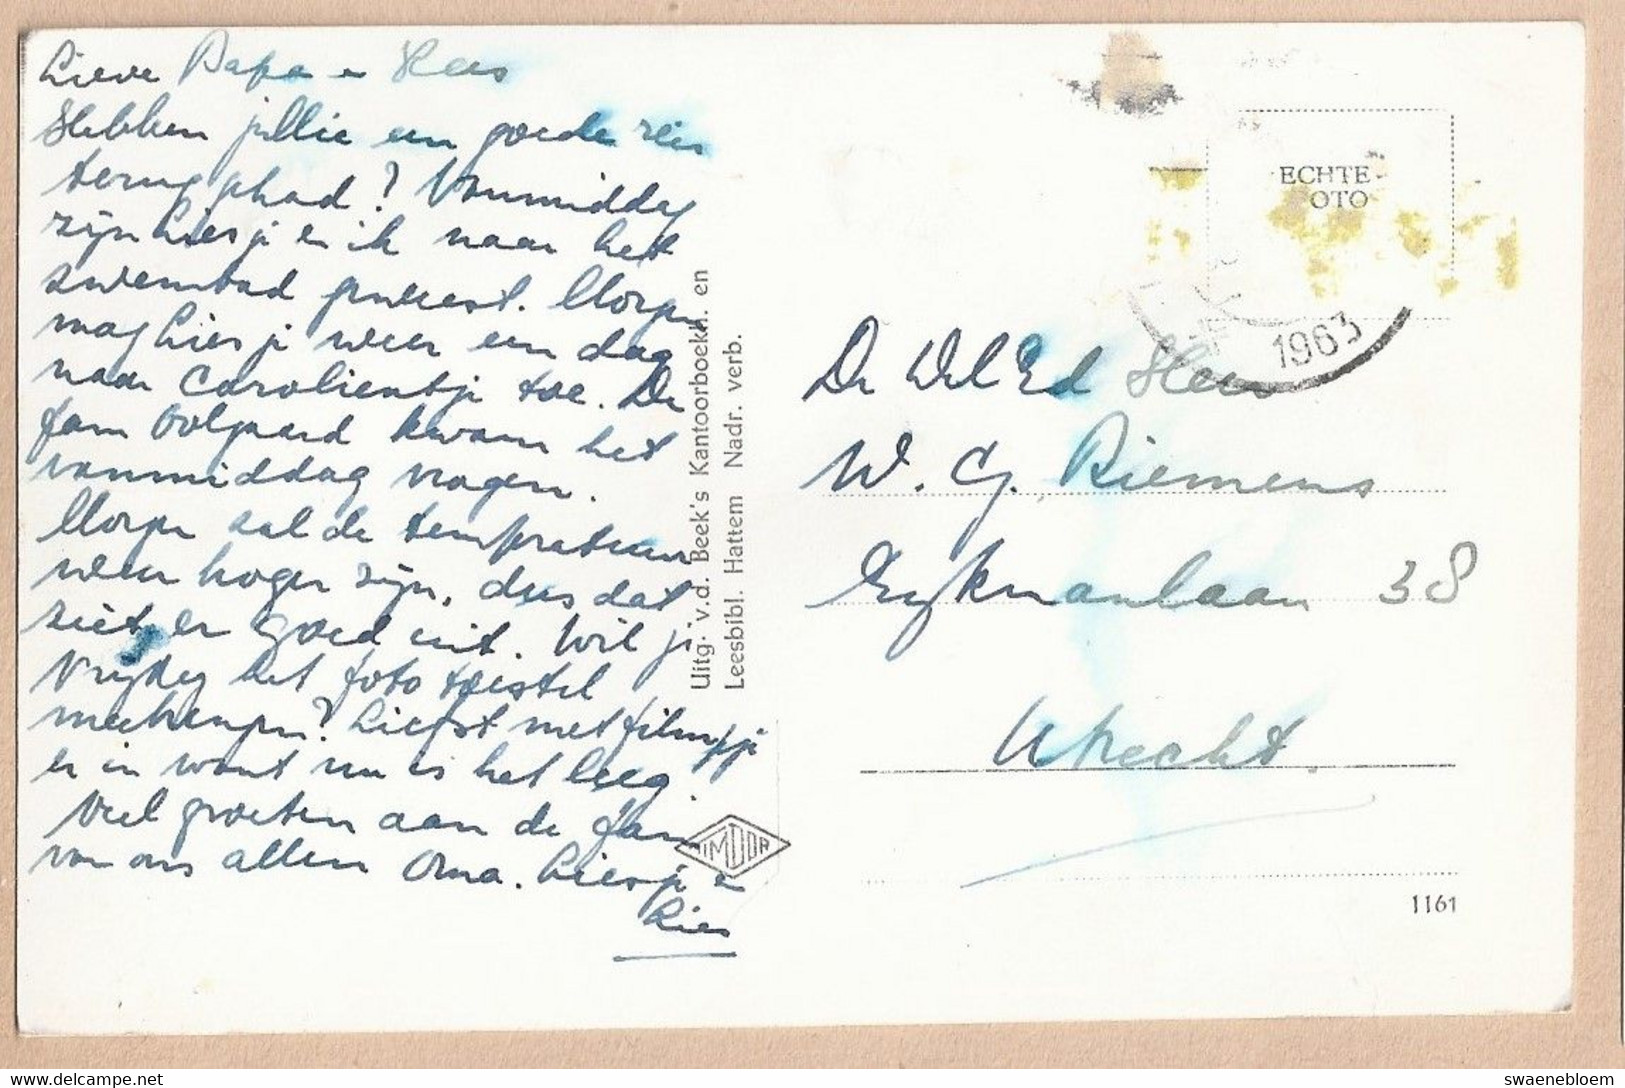 Lieve Papa en Kees
Hebben jullie een goede reis
terug gehad? Vanmiddag
zijn Liesje en ik naar het
zwembad geweest. Morgen
mag Liesje weer een dag
naar Carolientje toe. De
fam Volgaard kwam het
vanmiddag vragen.
Morgen zal de temperatuur
weer hoger zijn, dus dat
ziet er goed uit. Wil je
Vrijdag het foto toestel
meebrengen? Liefst met filmpje
er in want nu is het leeg
Veel groeten aan de fam
van ons allen Oma. Liesje en
Lies
Uitg. v.d. Beek's Kantoorboekh. en
Leesbibl. Hattem Nadr. verb.
IMDOR
ECHTE
OTO
1963
De Wel Ed Heer
W. C. J. Riemens
Eijkmanlaan 38
Utrecht.
1161
swaenebloem